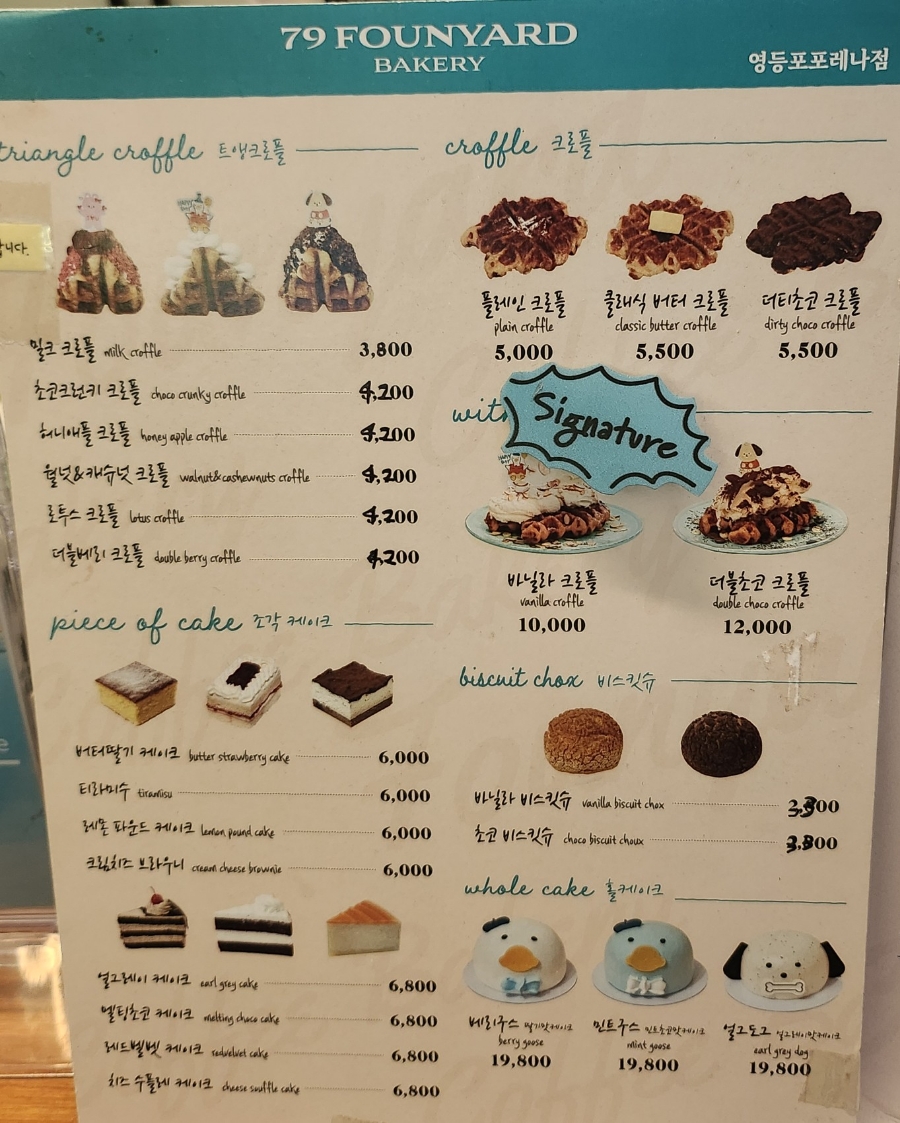 79 FOUNYARD
BAKERY
영등포포레나점
triangle croffle 트앵크로플
니다.
밀크 크로플 milk croffle 3,800
초코크런키 크로플 choco crunky croffle 4,200
허니애플 크로플 honey apple croffle 4,200
월넛&캐슈넛 크로플 walnut&cashewnuts croffle 4,200
로투스 크로플 lotus croffle 4,200
더블베리 크로플 double berry croffle 4,200
piece of cake 조각 케이크
버터딸기 케이크 butter strawberry cake 6,000
티라미수 tiramisu 6,000
레몬 파운드 케이크 lemon pound cake 6,000
크림치즈 브라우니 cream cheese brownie 6,000
얼그레이 케이크 earl grey cake 6,800
멜팅초코 케이크 melting choco cake 6,800
레드벨벳 케이크 redvelvet cake 6,800
치즈 수플레 케이크 cheese souffle cake 6,800
croffle 크로플
플레인 크로플 클래식 버터 크로플 더티초코 크로플
plain croffle classic butter croffle dirty choco croffle
5,000 5,500 5,500
with
Signature
바닐라 크로플 더블초코 크로플
vanilla croffle double choco croffle
10,000 12,000
biscuit chox 비스킷슈
바닐라 비스킷슈 vanilla biscuit chox
초코 비스킷슈 choco biscuit choux
whole cake 홀케이크
베리구스 딸기맛케이크 민트구스 민트초코맛케이크 얼그도그 얼그레이맛케이크
berry goose mint goose earl grey dog
19,800 19,800 19,800